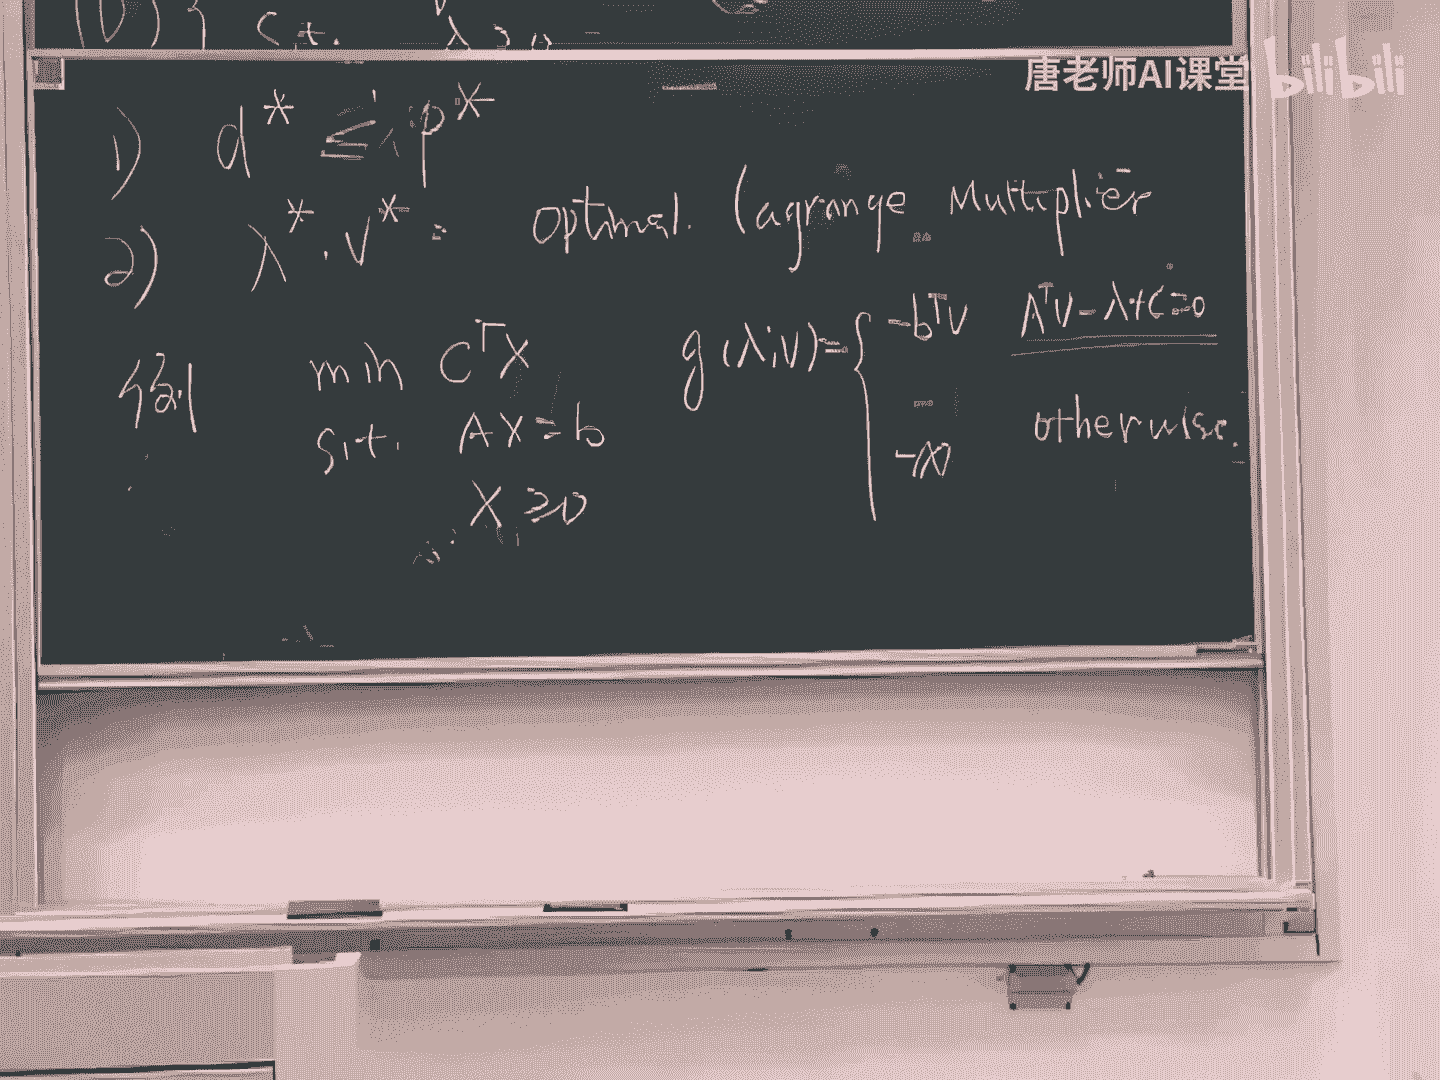 唐老师AI课堂 bilibili
(D) { s.t. λ ≥ 0
1) d* ≤ p*
2) λ*, v* : optimal. Lagrange Multiplier
例 min C^T X
s.t. AX = b
X ≥ 0
g(λ,v) = { -b^T v A^T v - λ + C = 0
-∞ otherwise.